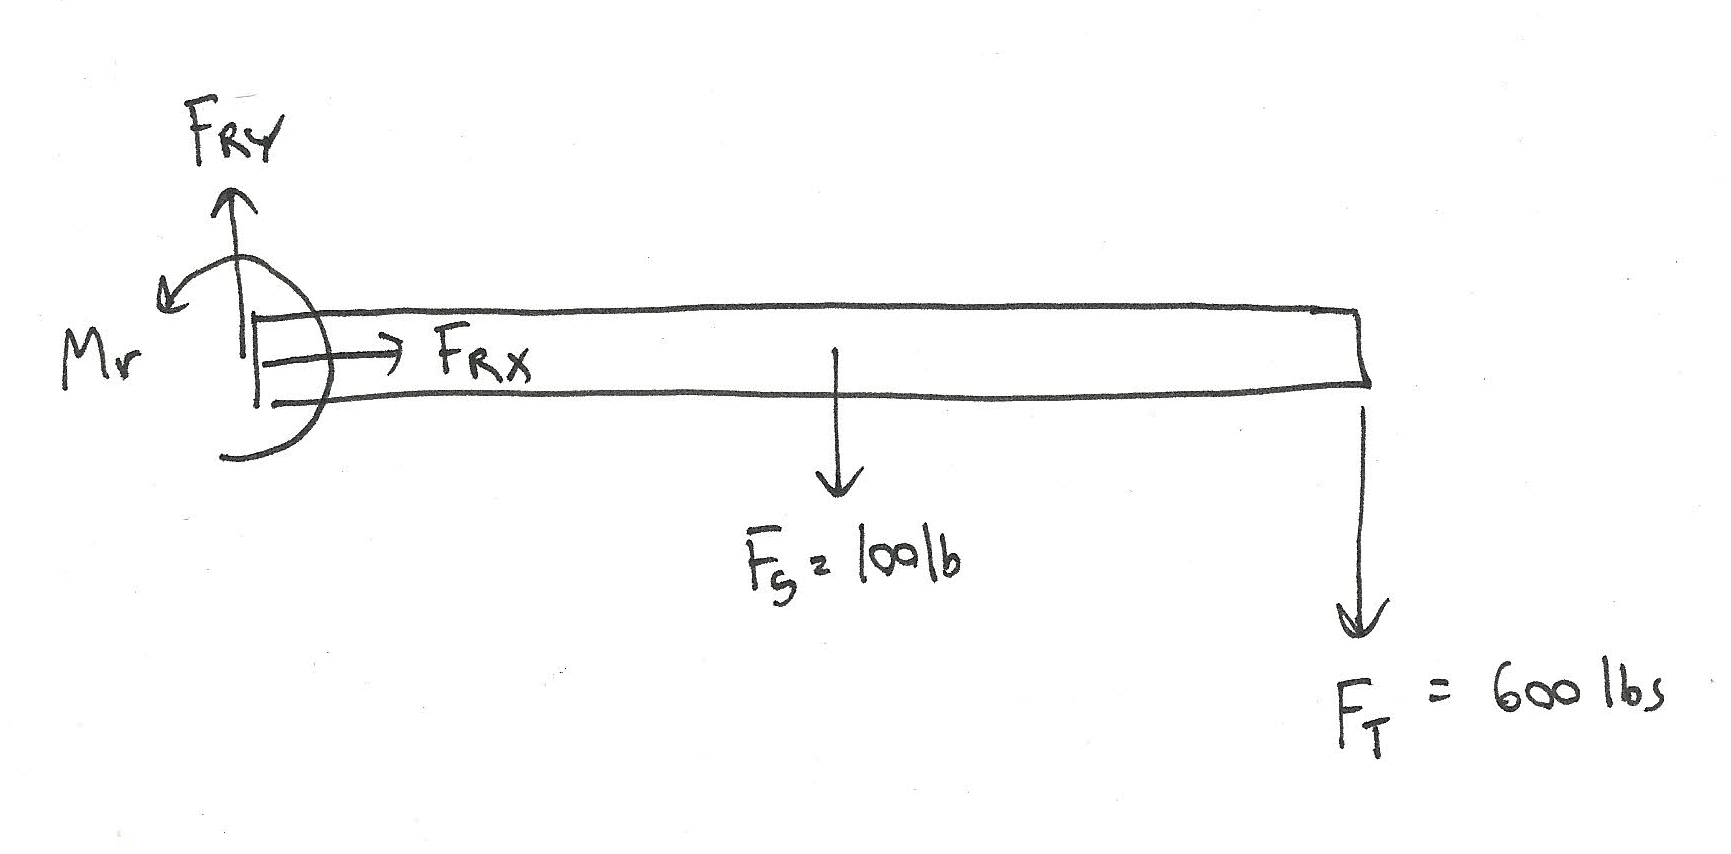 FRY
Mr
FRX
Fs = 100lb
FT = 600 lbs